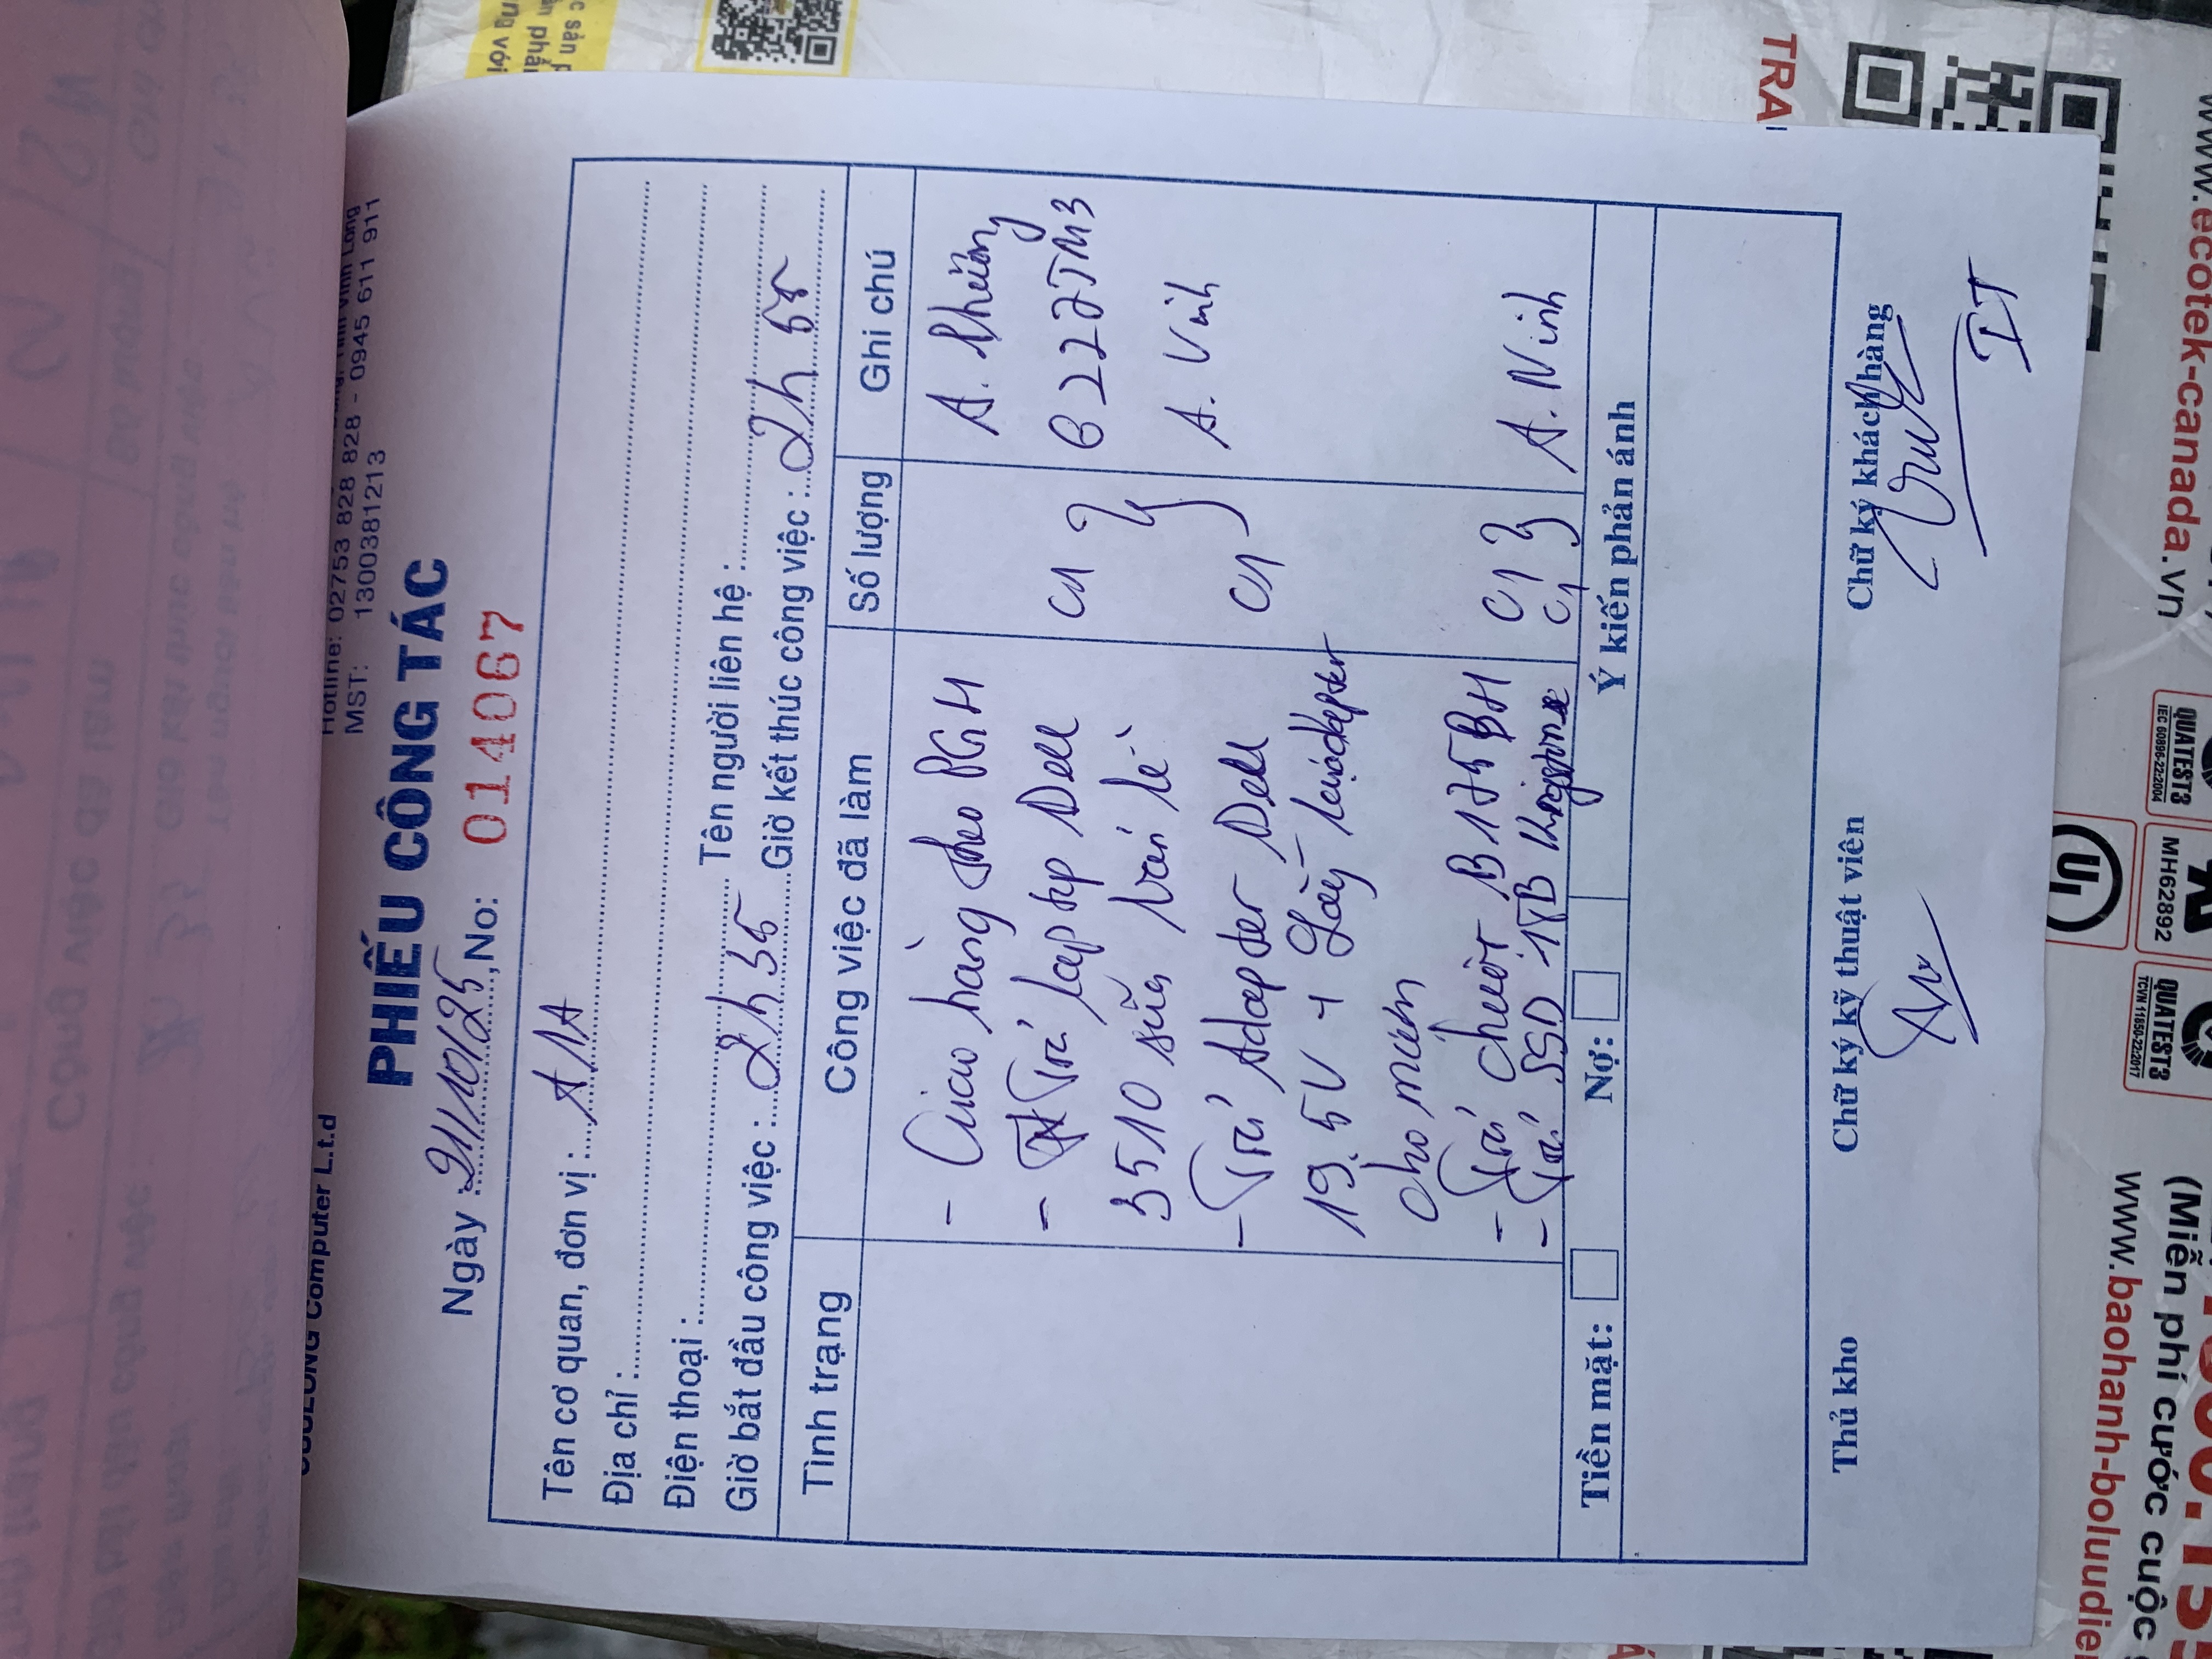 Computer L.t.d
Hotline: 02753 828 828 - 0945 611 911
MST: 1300381213
PHIẾU CÔNG TÁC
Ngày : 21/10/25, No: 014067
Tên cơ quan, đơn vị :
Địa chỉ :
Điện thoại : Tên người liên hệ :
Giờ bắt đầu công việc : 2h35 Giờ kết thúc công việc : 2h58
Tình trạng Công việc đã làm Số lượng Ghi chú
- Giao hàng theo PGH A.
- Trả laptop Dell C1 6222TM3
3510 sửa bản lề
- Trả Adapter Dell C1 A. Vinh
19.5V + Lấy lại adapter
cho mượn
- Trả chuột B175BH C1
- Trả SSD 1TB Kingstone C1 A. Ninh
Tiền mặt: Nợ: Ý kiến phản ánh
Thủ kho Chữ ký kỹ thuật viên Chữ ký khách hàng
IT
TRA
www.ecotek-canada.vn
QUATEST3
IEC 60896-22:2004
MH62892
QUATEST3
TCVN 11850-22:2017
UL
(Miễn phí cước cuộc
www.baohanh-boluudie